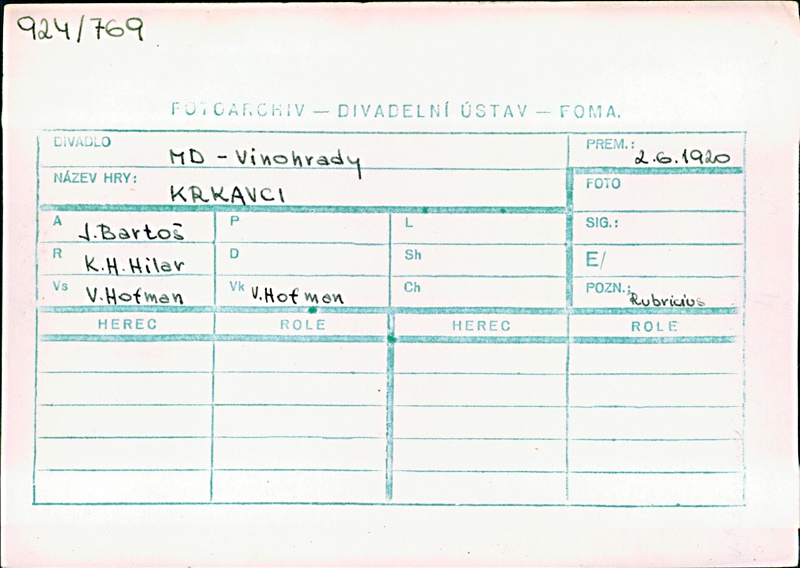 924/769
FOTOARCHIV — DIVADELNÍ ÚSTAV — FOMA.
DIVADLO MD - Vinohrady PREM.: 2.6.1920
NÁZEV HRY: KRKAVCI FOTO
A J. Bartoš P L SIG.:
R K.H. Hilar D Sh E/
Vs V. Hofman Vk V. Hofman Ch POZN.: Rubricius
HEREC ROLE HEREC ROLE